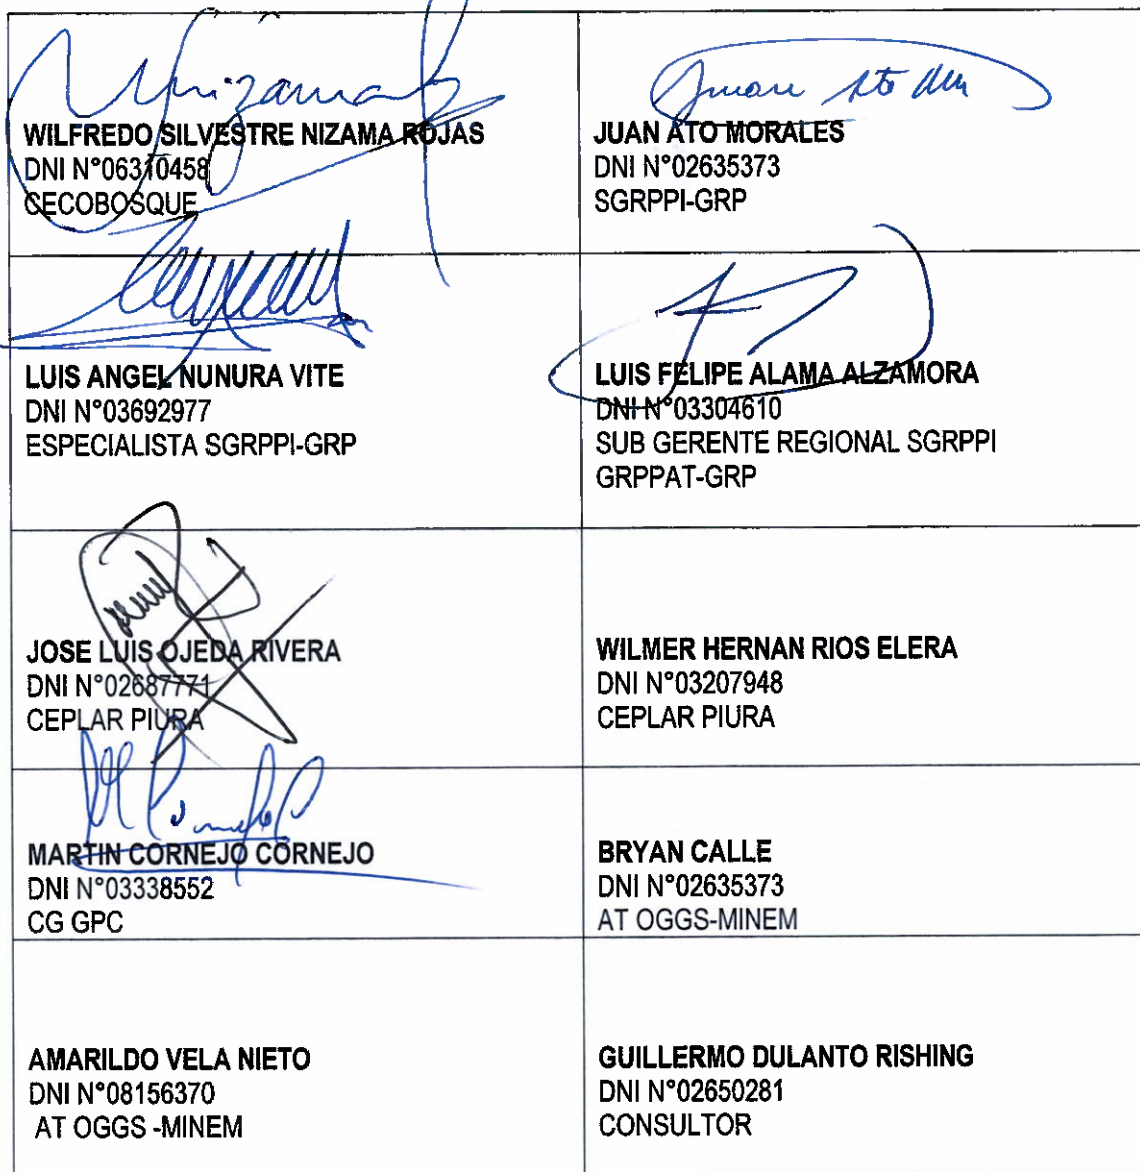 WILFREDO SILVESTRE NIZAMA ROJAS
DNI N°06310458
CECOBOSQUE
JUAN ATO MORALES
DNI N°02635373
SGRPPI-GRP
LUIS ANGEL NUNURA VITE
DNI N°03692977
ESPECIALISTA SGRPPI-GRP
LUIS FELIPE ALAMA ALZAMORA
DNI N°03304610
SUB GERENTE REGIONAL SGRPPI
GRPPAT-GRP
JOSE LUIS OJEDA RIVERA
DNI N°02687771
CEPLAR PIURA
WILMER HERNAN RIOS ELERA
DNI N°03207948
CEPLAR PIURA
MARTIN CORNEJO CORNEJO
DNI N°03338552
CG GPC
BRYAN CALLE
DNI N°02635373
AT OGGS-MINEM
AMARILDO VELA NIETO
DNI N°08156370
AT OGGS -MINEM
GUILLERMO DULANTO RISHING
DNI N°02650281
CONSULTOR